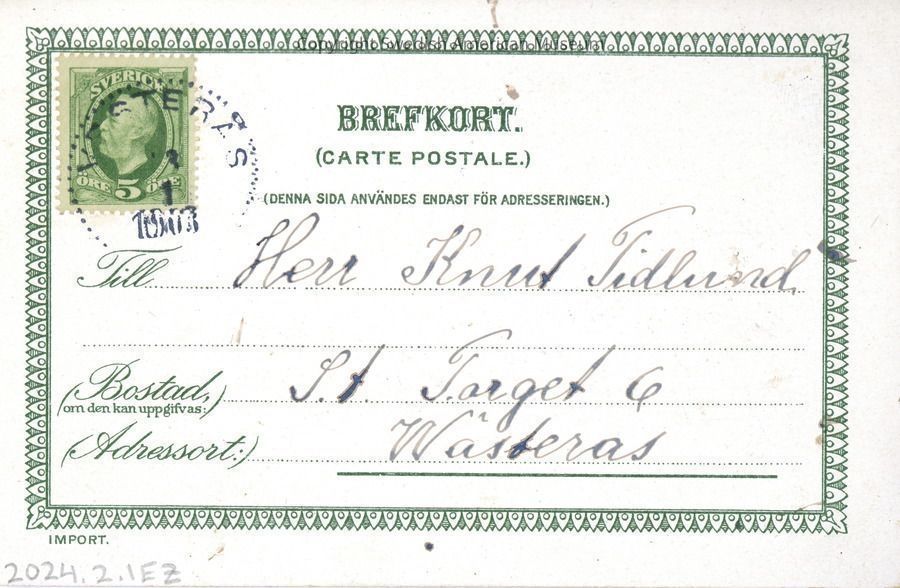 Copyright Swedish American Museum
SVERIGE
ÖRE 5 ÖRE
VÄSTERÅS
1
BREFKORT.
(CARTE POSTALE.)
(DENNA SIDA ANVÄNDES ENDAST FÖR ADRESSERINGEN.)
Till Herr Knut Tidlund
(Bostad, S.t. Torget 6
om den kan uppgifvas:)
(Adressort:) Wästeras
IMPORT.
2024.2.1EZ